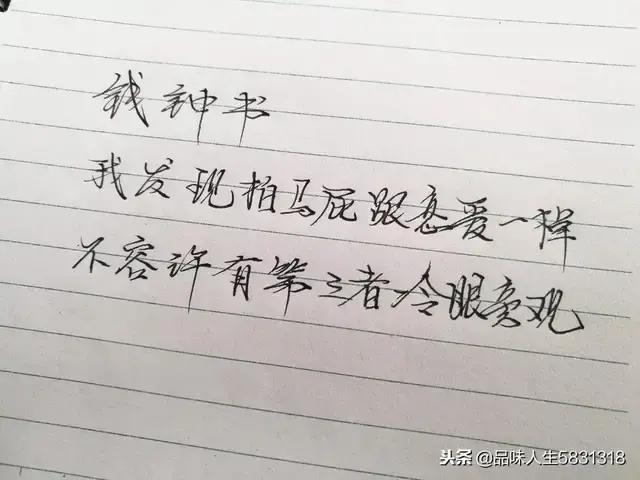 钱钟书
我发现拍马屁跟恋爱一样
不容许有第三者冷眼旁观
头条 @品味人生5831318